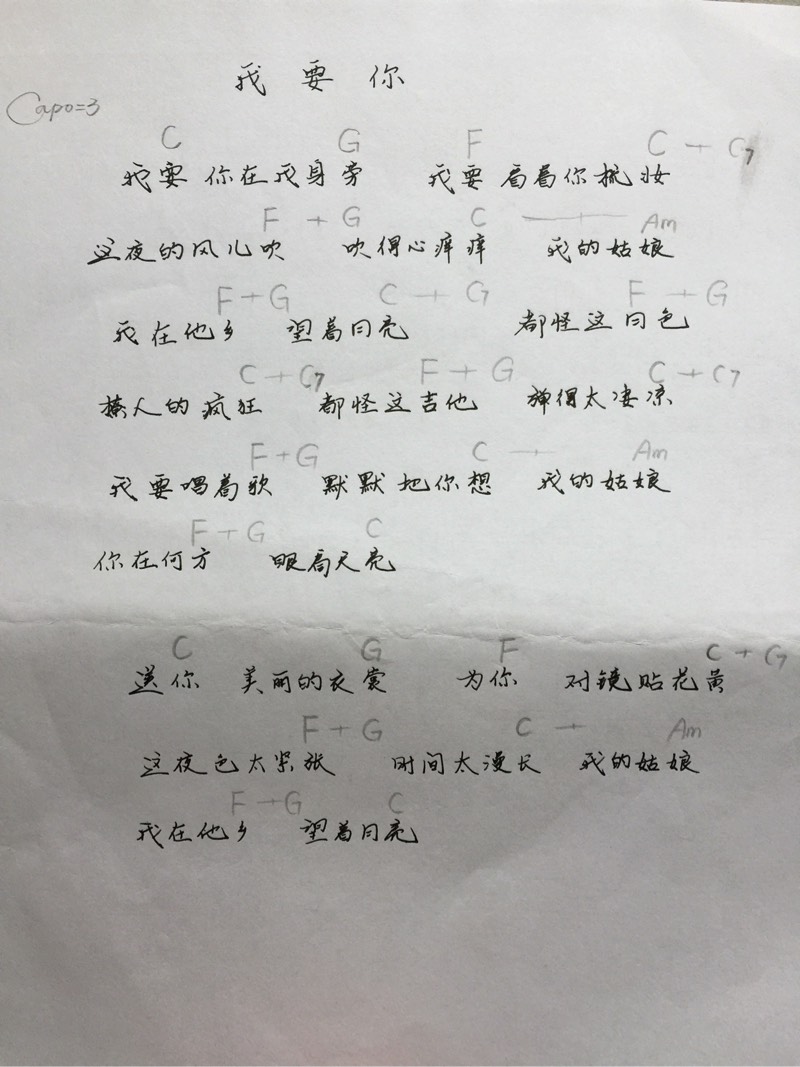 我要你
Capo=3
C G F C → C7
我要 你在我身旁 我要 看着你梳妆
F + G C → Am
这夜的风儿吹 吹得心痒痒 我的姑娘
F+G C → G F → G
我在他乡 望着月亮 都怪这月色
C + C7 F + G C → C7
撩人的疯狂 都怪这吉他 弹得太凄凉
F+G C → Am
我要唱着歌 默默把你想 我的姑娘
F+G C
你在何方 眼看天亮
C G F C + G
送你 美丽的衣裳 为你 对镜贴花黄
F → G C → Am
这夜色太紧张 时间太漫长 我的姑娘
F → G C
我在他乡 望着月亮